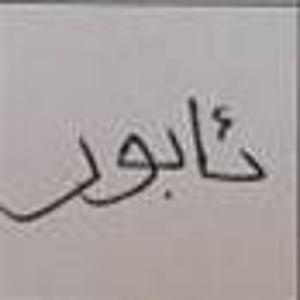 ئابور